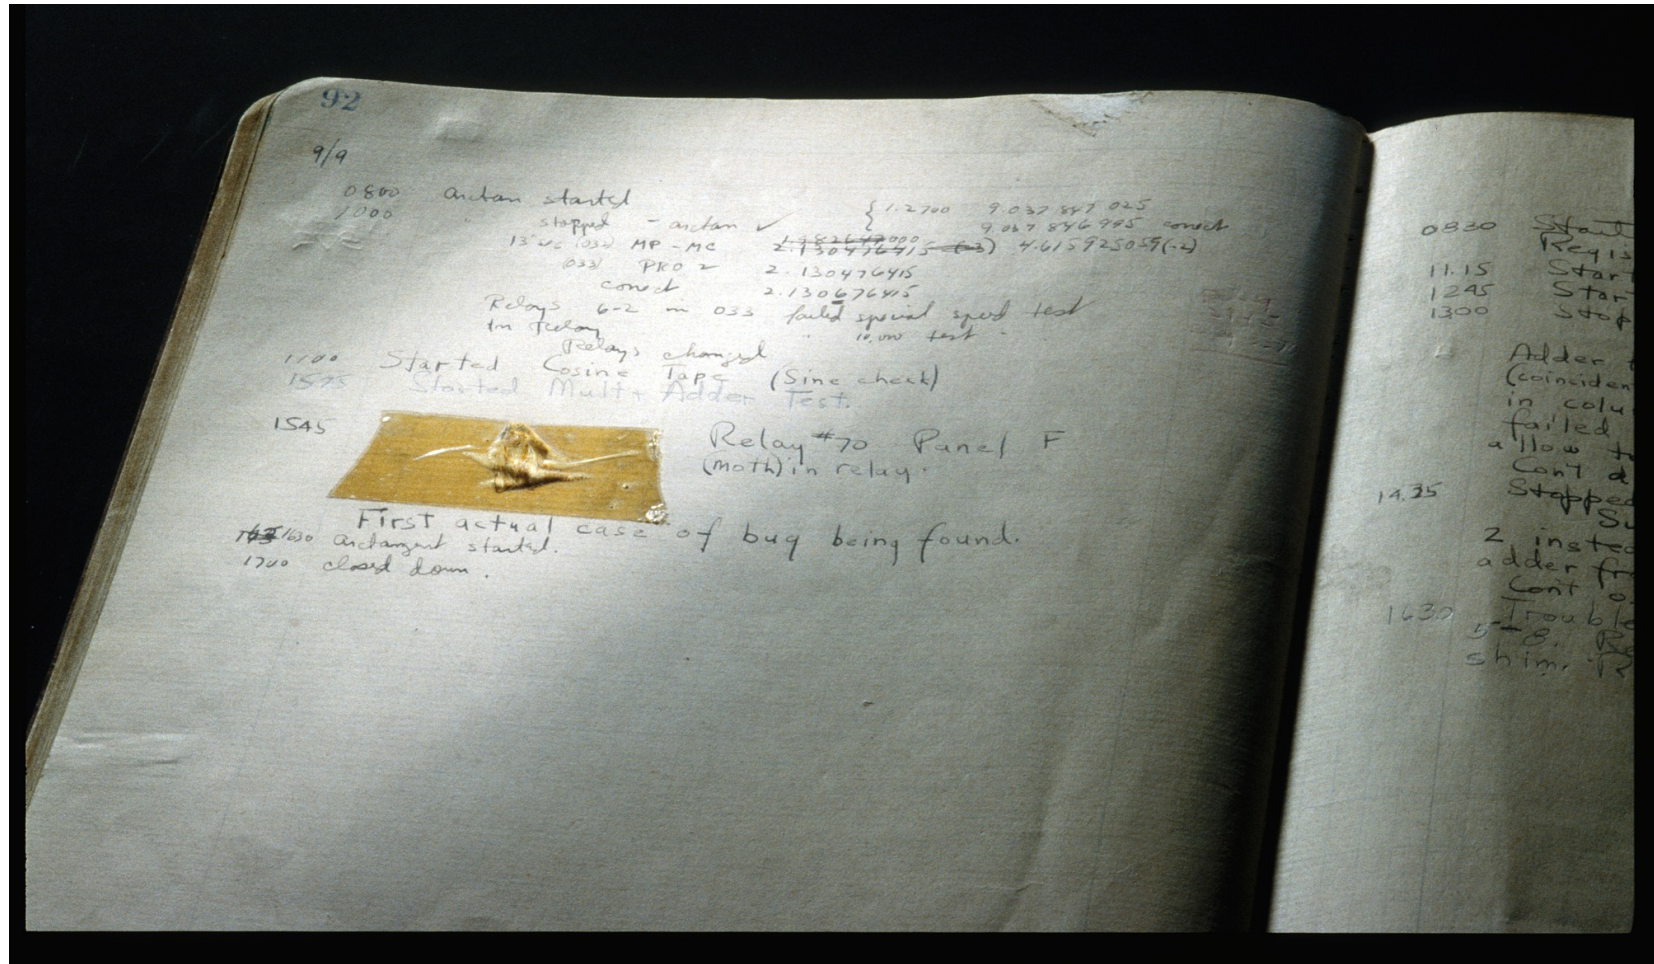 92
9/9
0800 arctan started { 1.2700 9.037 847 025
1000 " stopped - arctan ✓ 9.037 846 995 correct
13"uc (032) MP - MC 2.130476415 (-3) 4.615925059(-2)
(033) PRO 2 2.130476415
correct 2.130676415
Relays 6-2 in 033 failed special speed test
In Relay " 10.000 test
Relays changed
1100 Started Cosine Tape (Sine check)
1525 Started Mult + Adder Test.
1545 Relay #70 Panel F
(moth) in relay.
First actual case of bug being found.
1630 arctangent started.
1700 closed down.
0830 Start
Regis
11.15 Star
1245 Star
1300 Stop
Adder
(coinciden
in colu
failed
allow to
Cont d
14.35 Stopped
Su
2 inste
adder fr
Cont o
1630 Trouble
5-8. R
shim. R